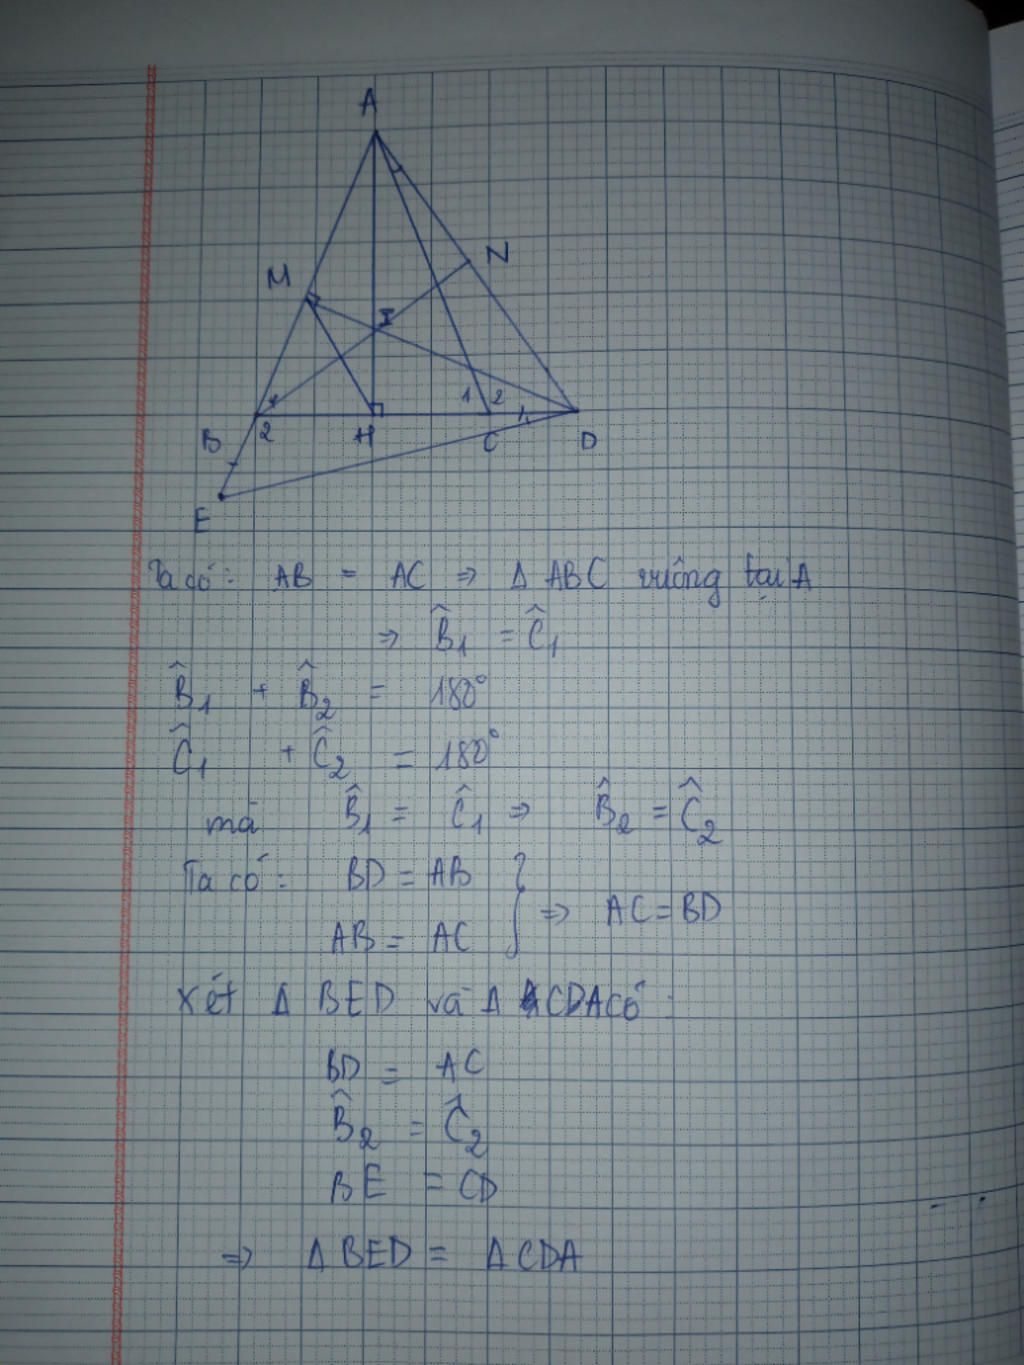 A
M
N
I
1
1
2
B
2
H
C
D
E
Ta có: AB = AC ⇒ Δ ABC vuông tại A
⇒ B̂₁ = Ĉ₁
B̂₁ + B̂₂ = 180°
Ĉ₁ + Ĉ₂ = 180°
mà B̂₁ = Ĉ₁ ⇒ B̂₂ = Ĉ₂
Ta có: BD = AB
AB = AC } ⇒ AC = BD
Xét Δ BED và Δ CDA có:
BD = AC
B̂₂ = Ĉ₂
BE = CD
⇒ Δ BED = Δ CDA